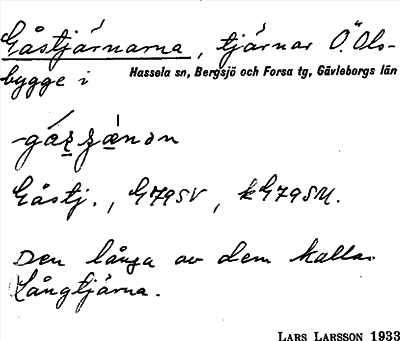 Gåstjärnarna, tjärnar Ö. Ols-
bygge i Hassela sn, Bergsjö och Forsa tg, Gävleborgs län
Gåstj., G79SV, kG79SM.
Den långa av dem kallas
Långtjärna.
LARS LARSSON 1933